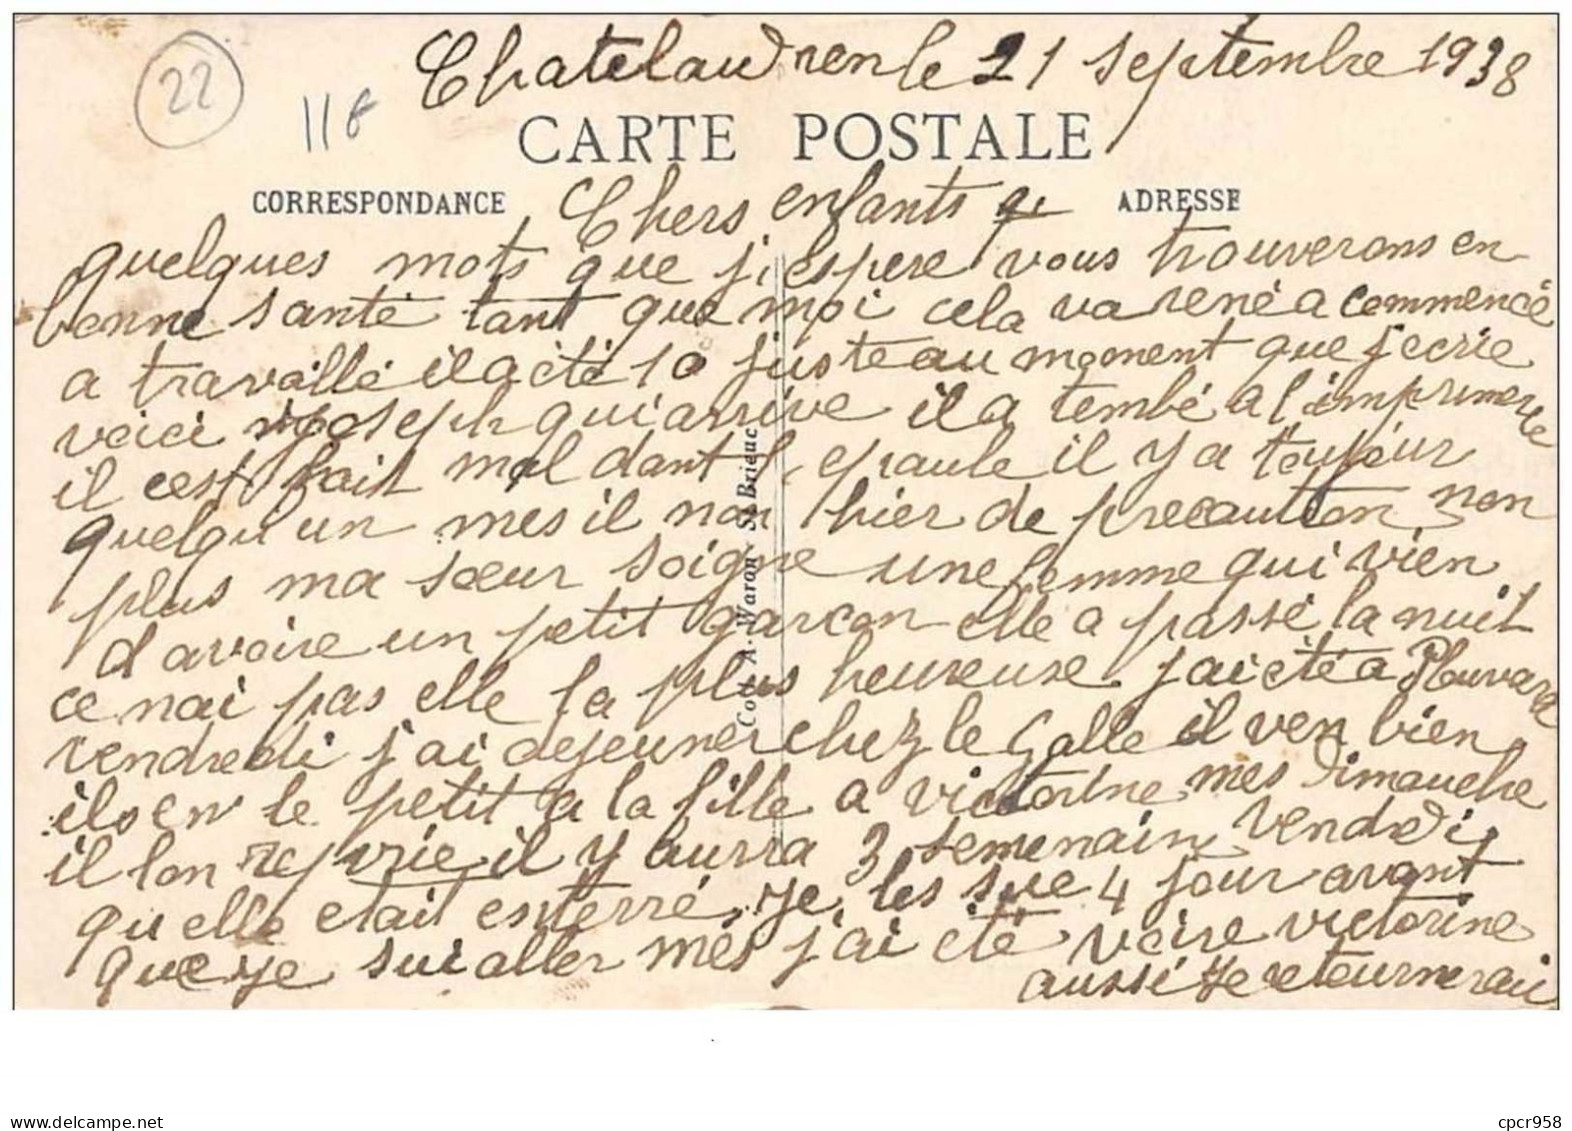 Chatelaudren le 21 septembre 1938
22
11€
CARTE POSTALE
CORRESPONDANCE
ADRESSE
Chers enfants
quelques mots que j'espere vous trouverons en
bonne santé tant que moi cela va rené a commencé
a travaillé il a été 10 juste au moment que j'ecrie
voici joseph qui arrive il a tembé a l'imprimerie
il cest fait mal dant l'epaule il y a toujour
quelqu'un mes il non hier de precaution non
plus ma sœur soigne une femme qui vien
d avoire un petit garcon elle a passé la nuit
ce nai pas elle la plus heureuse jai été a Plouvara
vendredi j'ai dejeuner chez le Galle il von bien
ils en le petit a la fille a victorine mes dimanche
il lon il y aurra 3 semenain vendredi
qu elle etait enterré. je les sue 4 jour avant
que je sui aller mes j'ai été voire victorine
aussi je retournerai
Coll. A. Waron - St-Brieuc
cpcr958